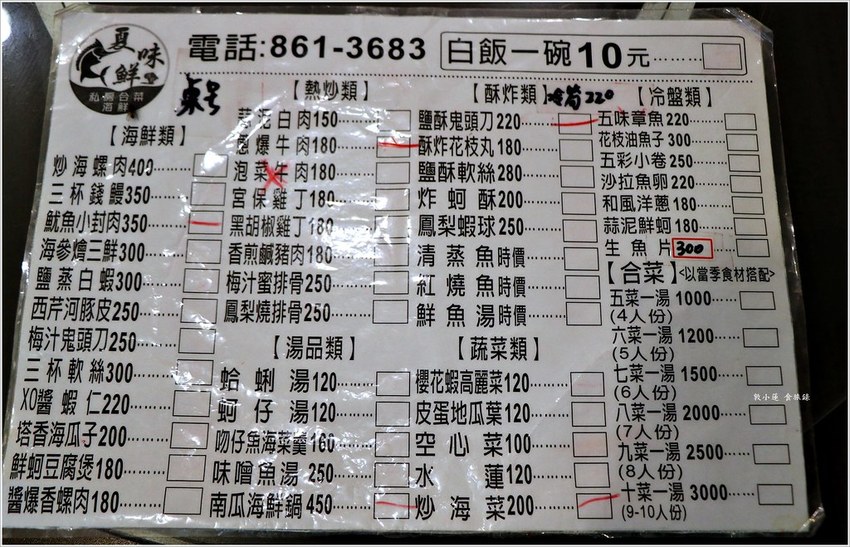 夏味鮮
私房台菜
海鮮
電話:861-3683
白飯一碗10元
桌号
【海鮮類】
炒海螺肉400
三杯錢鰻350
魷魚小封肉350
海參燴三鮮300
鹽蒸白蝦300
西芹河豚皮250
梅汁鬼頭刀250
三杯軟絲300
XO醬蝦仁220
塔香海瓜子200
鮮蚵豆腐煲180
醬爆香螺肉180
【熱炒類】
蒜泥白肉150
蔥爆牛肉180
泡菜牛肉180
宮保雞丁180
黑胡椒雞丁180
香煎鹹豬肉180
梅汁蜜排骨250
鳳梨燒排骨250
【湯品類】
蛤蜊湯120
蚵仔湯120
吻仔魚海菜羹160
味噌魚湯250
南瓜海鮮鍋450
【酥炸類】
鹽酥鬼頭刀220
酥炸花枝丸180
鹽酥軟絲280
炸蚵酥200
鳳梨蝦球250
清蒸魚時價
紅燒魚時價
鮮魚湯時價
【蔬菜類】
櫻花蝦高麗菜120
皮蛋地瓜葉120
空心菜100
水蓮120
炒海菜200
冷筍220
【冷盤類】
五味章魚220
花枝油魚子300
五彩小卷250
沙拉魚卵220
和風洋蔥180
蒜泥鮮蚵180
生魚片300
【合菜】<以當季食材搭配>
五菜一湯1000
(4人份)
六菜一湯1200
(5人份)
七菜一湯1500
(6人份)
八菜一湯2000
(7人份)
九菜一湯2500
(8人份)
十菜一湯3000
(9-10人份)
敦小蓮 食旅錄